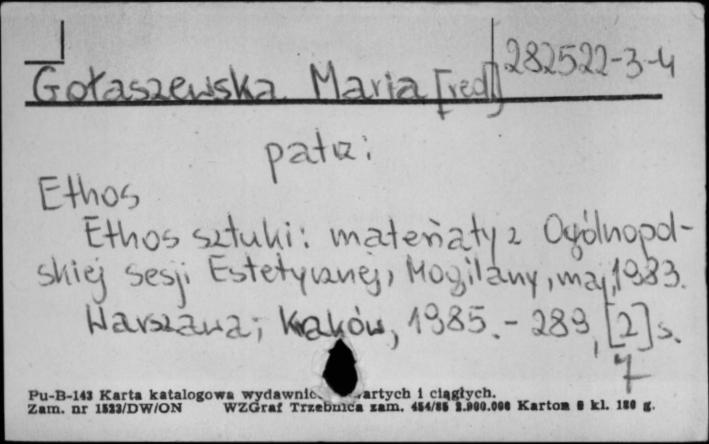 282522-3-4
Gołaszewska Maria [red]
patrz:
Ethos
Ethos sztuki: materiały z Ogólnopol-
skiej Sesji Estetycznej, Mogilany, maj, 1983.
Warszawa; Kraków, 1985. - 289, [2] s.
7
Pu-B-143 Karta katalogowa wydawnic artych i ciągłych.
Zam. nr 1523/DW/ON WZGraf Trzebnica zam. 454/85 2.900.000 Karton 6 kl. 180 g.